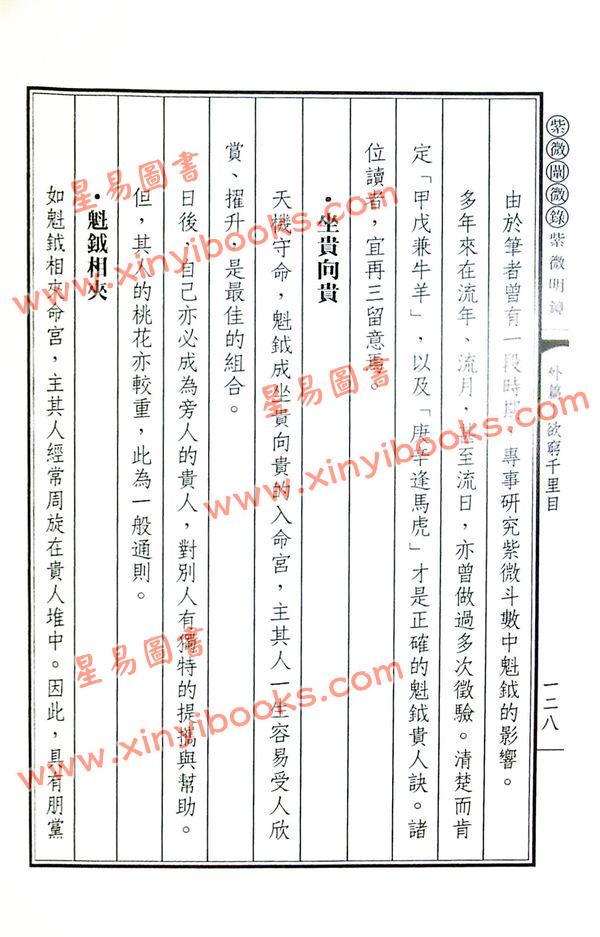 紫微闡微錄 紫微明鏡 外篇 欲窮千里目 一二八
由於筆者曾有一段時期，專事研究紫微斗數中魁鉞的影響。
多年來在流年、流月，甚至流日，亦曾做過多次徵驗。清楚而肯
定「甲戊兼牛羊」，以及「庚辛逢馬虎」才是正確的魁鉞貴人訣。諸
位讀者，宜再三留意焉。
·坐貴向貴
天機守命，魁鉞成坐貴向貴的入命宮，主其人一生容易受人欣
賞、擢升，是最佳的組合。
日後，自己亦必成為旁人的貴人，對別人有獨特的提攜與幫助。
但，其人的桃花亦較重，此為一般通則。
·魁鉞相夾
如魁鉞相夾命宮，主其人經常周旋在貴人堆中。因此，具有朋黨
星易圖書
www.xinyibooks.com
星易圖書
www.xinyibooks.com
星易圖書
www.xinyibooks.com